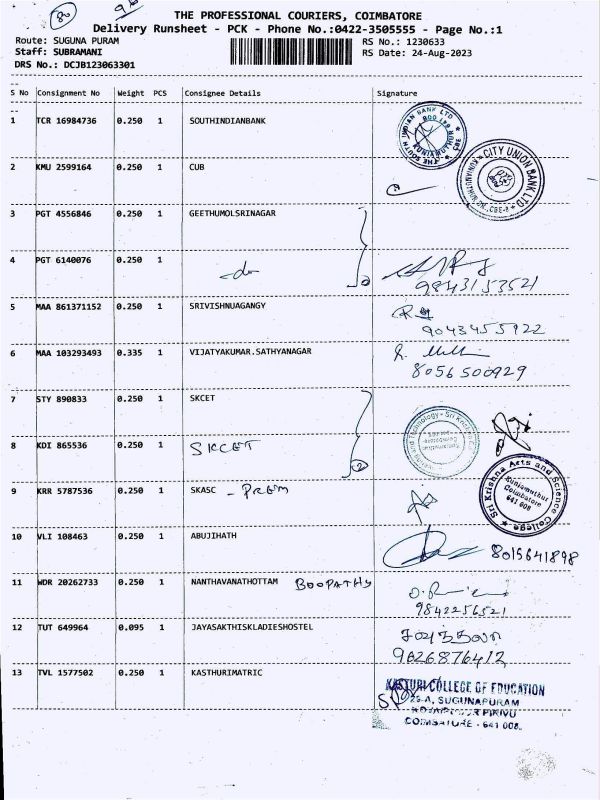 80
THE PROFESSIONAL COURIERS, COIMBATORE
Delivery Runsheet - PCK - Phone No.:0422-3505555 - Page No.:1
Route: SUGUNA PURAM
RS No.: 1230633
Staff: SUBRAMANI
RS Date: 24-Aug-2023
DRS No.: DCJB123063301
S No Consignment No Weight PCS Consignee Details Signature
1 TCR 16984736 0.250 1 SOUTHINDIANBANK
THE SOUTH INDIAN BANK LTD KUNIAMUTHUR CBE 641 008
2 KMU 2599164 0.250 1 CUB
CITY UNION BANK LTD KUNIAMUTHUR BR. CBE-8
3 PGT 4556846 0.250 1 GEETHUMOLSRINAGAR
4 PGT 6140076 0.250 1 -do- 2
9843153521
5 MAA 861371152 0.250 1 SRIVISHNUAGANGY
9043455922
6 MAA 103293493 0.335 1 VIJATYAKUMAR.SATHYANAGAR
8056500929
7 STY 890833 0.250 1 SKCET
8 KDI 865536 0.250 1 SKCET 2
9 KRR 5787536 0.250 1 SKASC - PREM
Sri Krishna Arts and Science College Kuniamuthur Coimbatore 641 008
10 VLI 108463 0.250 1 ABUJIHATH
8015641898
11 WDR 20262733 0.250 1 NANTHAVANATHOTTAM BOOPATHY
9842256521
12 TUT 649964 0.095 1 JAYASAKTHISKLADIESHOSTEL
9626876412
13 TVL 1577502 0.250 1 KASTHURIMATRIC
KASTURI COLLEGE OF EDUCATION
25-A, SUGUNAPURAM
PIRIVU
COIMBATORE - 641 008.